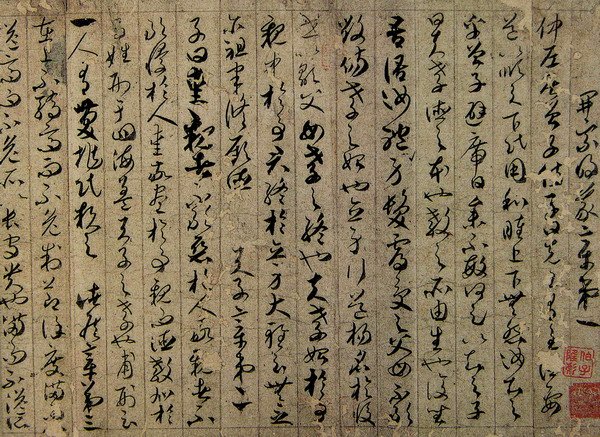 開宗明義章第一
仲尼居曾子侍子曰先王有至德要
道以順天下民用和睦上下無怨汝知之
乎曾子避席曰參不敏何足以知之子
曰夫孝德之本也教之所由生也復坐
吾語汝身體髮膚受之父母不敢
毀傷孝之始也立身行道揚名於後
世以顯父母孝之終也夫孝始於事
親中於事君終於立身大雅云無念
爾祖聿脩厥德 天子章第二
子曰愛親者不敢惡於人敬親者不
敢慢於人愛敬盡於事親而德教加於
百姓刑于四海蓋天子之孝也甫刑云
一人有慶兆民賴之 諸侯章第三
在上不驕高而不危制節謹度滿而不
溢高而不危所以長守貴也滿而不溢所